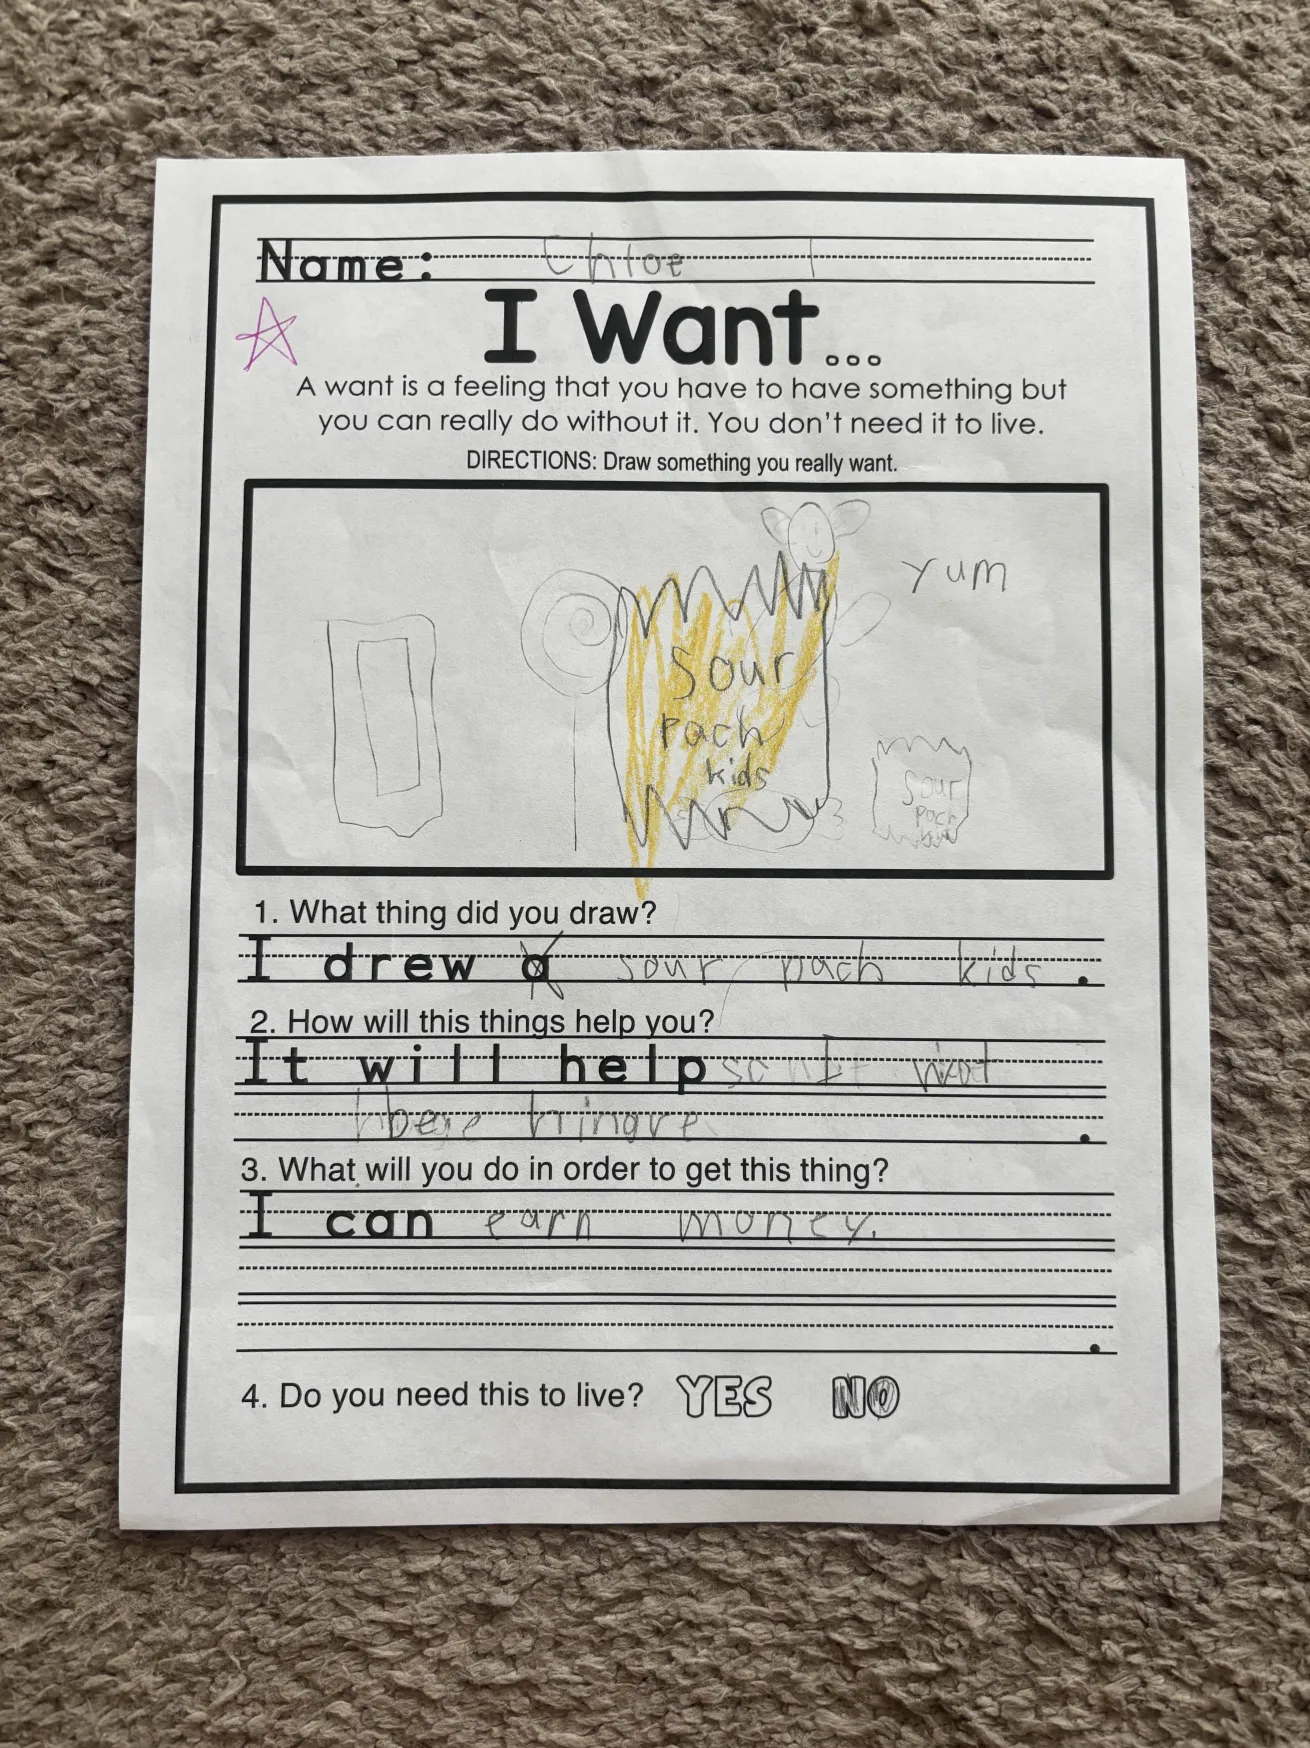 Name: Chloe
I Want...
A want is a feeling that you have to have something but
you can really do without it. You don't need it to live.
DIRECTIONS: Draw something you really want.
Yum
Sour
Pach
kids
Sour
Pach
1. What thing did you draw?
I drew a sour pach kids.
2. How will this things help you?
It will help
3. What will you do in order to get this thing?
I can earn money.
4. Do you need this to live? YES NO